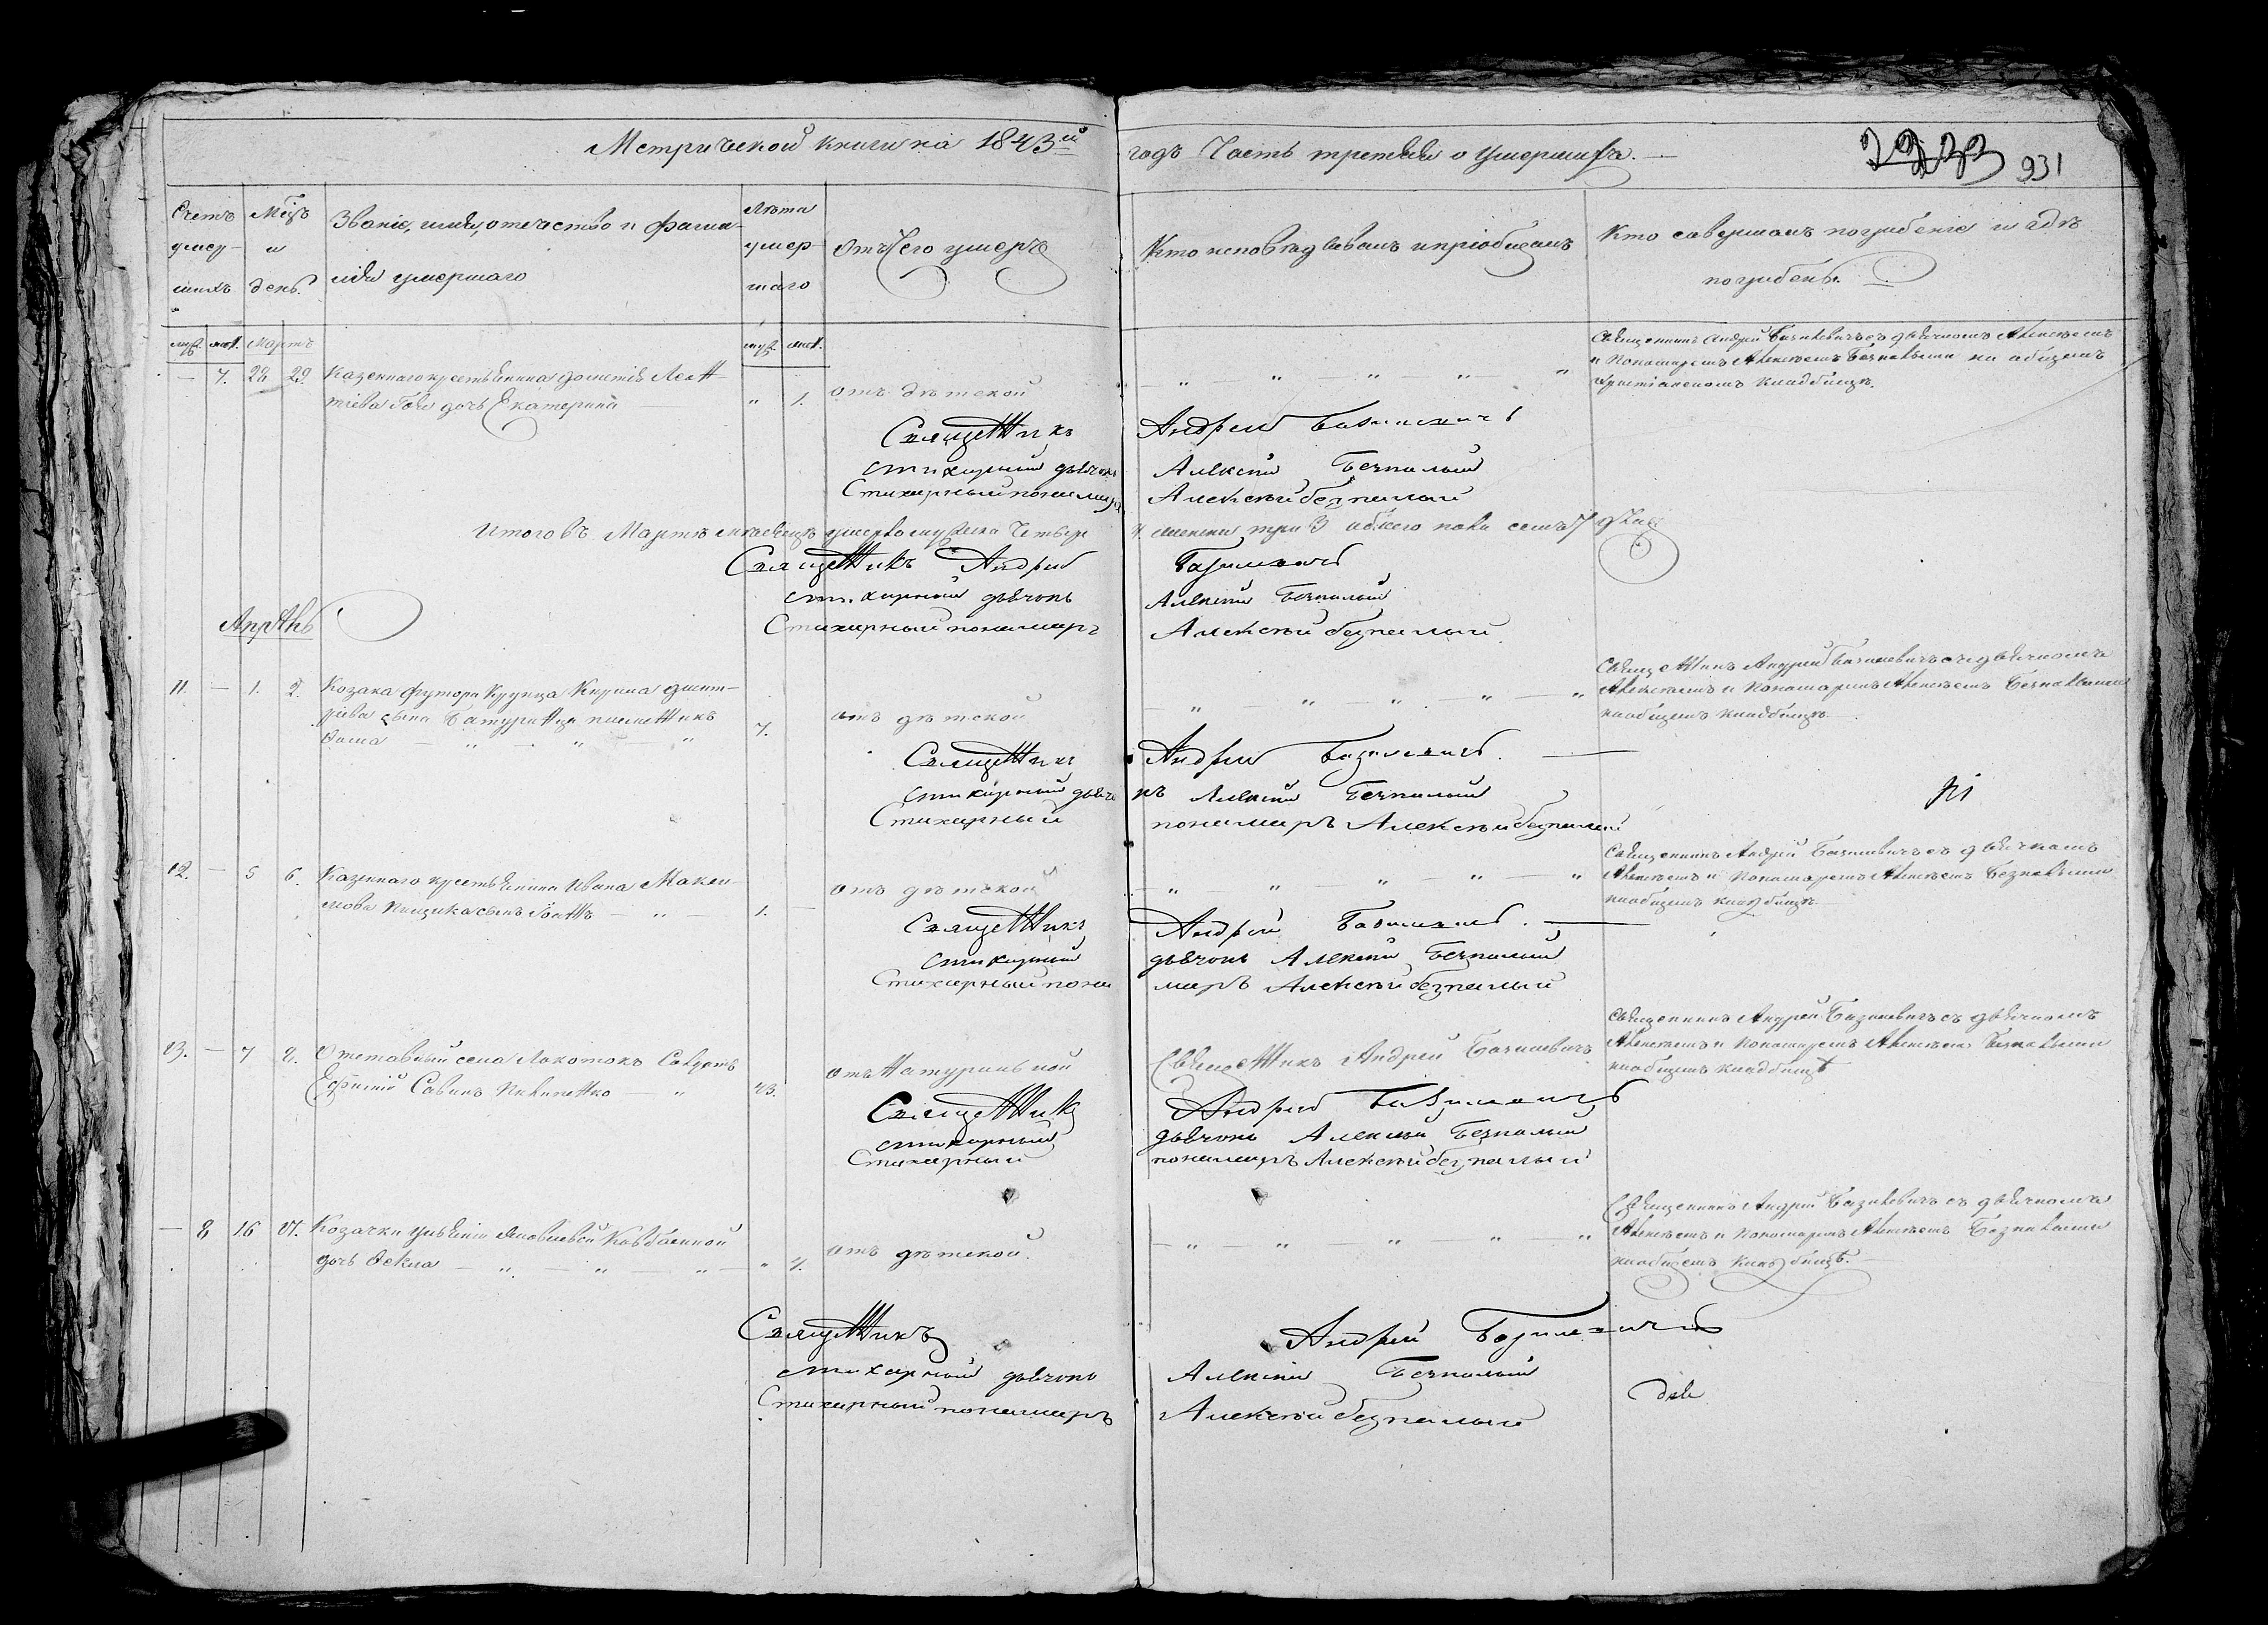 Метрической книги на 1843й годъ Часть третья о умершихъ.
931
Счетъ умер-шихъ
Мсцъ и день.
Званіе, имя, отечество и фами-
лія умершаго
Лѣта умер-шаго
Отъ Чего умеръ
Кто исповѣдывалъ и пріобщалъ
Кто совершалъ погребеніе и гдѣ
погребенъ.
муж. жен. Мартъ
муж. жен.
— 7. 28. 29. Казеннаго крестьянина
дочь Екатерина — " 1. отъ дѣтской — " — " — " — " — "
Священникъ Андрей Базилевичъ съ дьячкомъ Алексѣемъ
и Пономаремъ Алексѣемъ Безпалыми на общемъ
христіанскомъ кладбищѣ.
Священникъ Андрей Базилевичъ
стихарный дьячокъ Алексій Безпалый
Стихарный пономарь Алексѣй безпалый
Итого въ Мартѣ мѣсяцѣ умерло муж пола Четыре 4. женска три 3 обоего пола семь 7 душъ
Священникъ Андрей Базилевичъ
стихарный дьячокъ Алексій Безпалый
Стихарный пономарь Алексѣй безпалый
Апрѣль
11. — 1. 2. Козака хутора Крупца Кирила Дмит-
ріева сына племенникъ
Фома — " — " — " 7. отъ дѣтской — " — " — " — " — "
Священникъ Андрей Базилевичъ съ дьячкомъ
Алексѣемъ и Пономаремъ Алексѣемъ Безпалыми
на общемъ кладбищѣ
Священникъ Андрей Базилевичъ. —
стихарный дьячокъ Алексій Безпалый
Стихарный пономарь Алексѣй безпалый
12. — 5 6. Казеннаго крестьянина Ивана Макси-
мова сынъ Іоаннъ — " — 1. — отъ дѣтской — " — " — " — " — "
Священникъ Андрей Базилевичъ съ дьячкомъ
Алексѣемъ и Пономаремъ Алексѣемъ Безпалыми
на общемъ кладбищѣ
Священникъ Андрей Базилевичъ. —
стихарный дьячокъ Алексій Безпалый
Стихарный пономарь Алексѣй безпалый
13. — 7 8. Отставный села Локотокъ Солдатъ
Савинъ — " отъ натуральной
Священникъ Андрей Базилевичъ
Священникъ Андрей Базилевичъ съ дьячкомъ
Алексѣемъ и Пономаремъ Алексѣемъ Безпалыми
на общемъ кладбищѣ
Священникъ Андрей Базилевичъ
стихарный дьячокъ Алексій Безпалый
Стихарный пономарь Алексѣй безпалый
— 8 16 17. Козачки
дочь Фекла — " — " — " — " отъ дѣтской. — " — " — " — " — "
Священникъ Андрей Базилевичъ съ дьячкомъ
Алексѣемъ и Пономаремъ Алексѣемъ Безпалыми
на общемъ кладбищѣ.
Священникъ Андрей Базилевичъ
стихарный дьячокъ Алексій Безпалый
Стихарный пономарь Алексѣй безпалый